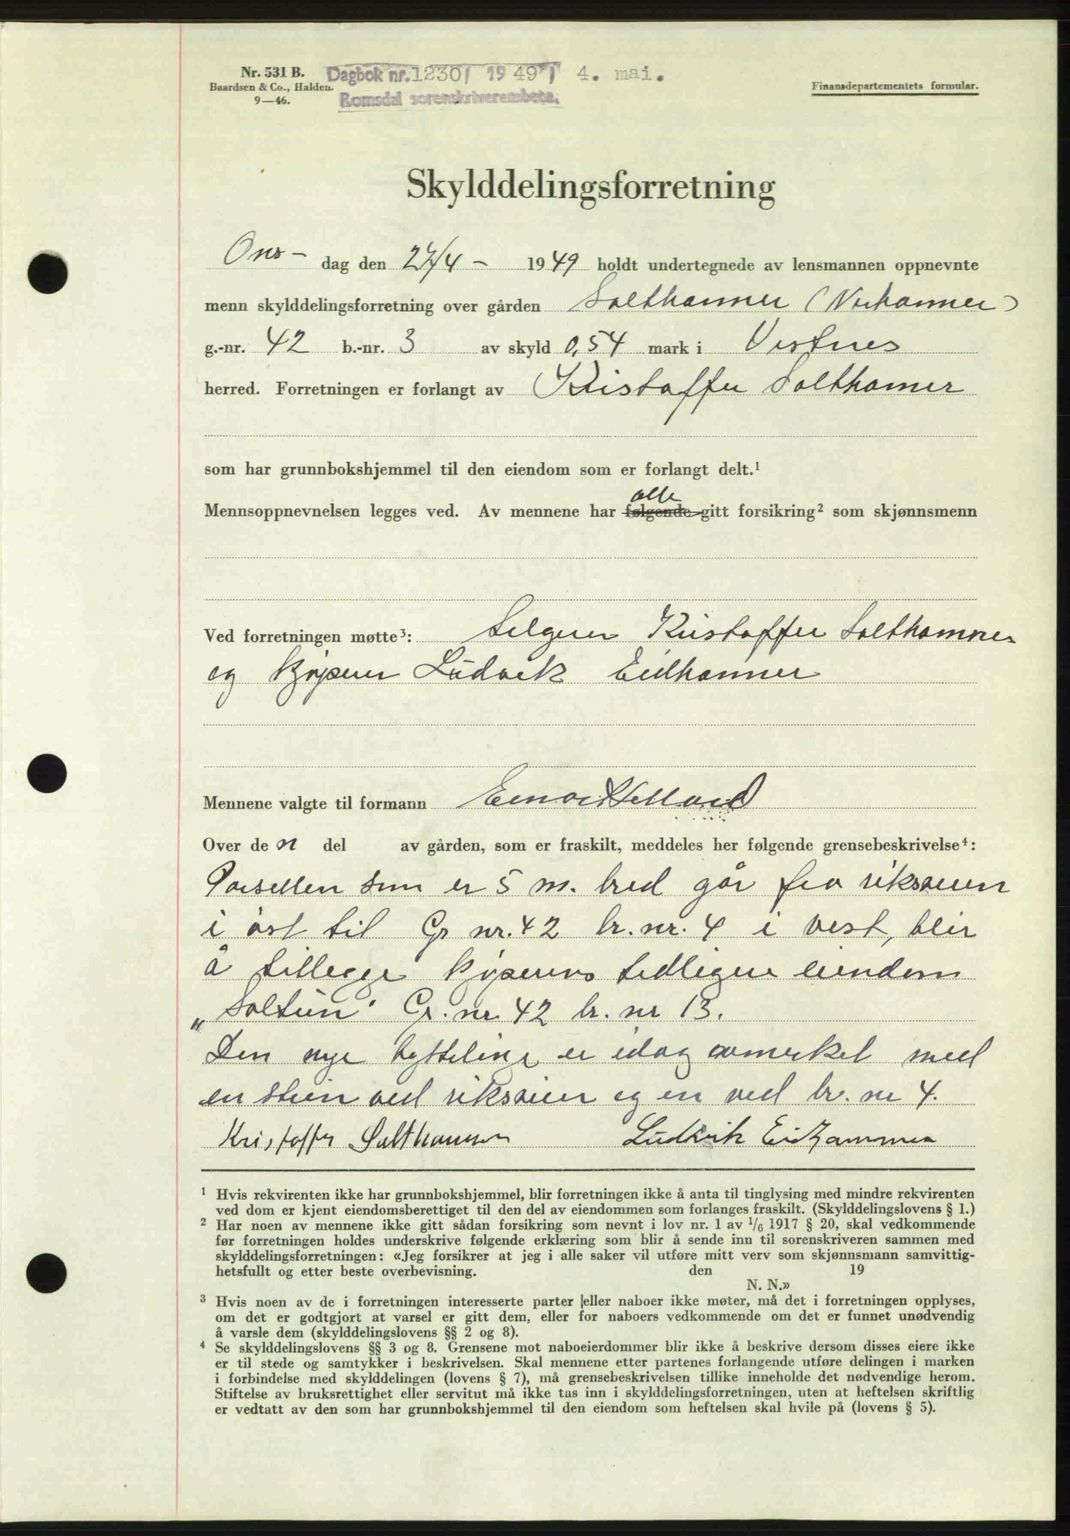 Nr. 531 B.
Baardsen & Co., Halden.
9—46.
Dagbok nr. 1230/ 1949 4. mai.
Romsdal sorenskriverembete.
Finansdepartementets formular.
Skylddelingsforretning
Ons- dag den 27/4 - 1949 holdt undertegnede av lensmannen oppnevnte
menn skylddelingsforretning over gården Salthammer (Norhammer)
g.-nr. 42 b.-nr. 3 av skyld 0,54 mark i Vestnes
herred. Forretningen er forlangt av Kristoffer Salthamer
som har grunnbokshjemmel til den eiendom som er forlangt delt.¹
Mennsoppnevnelsen legges ved. Av mennene har følgende alle gitt forsikring² som skjønnsmenn
Ved forretningen møtte³: Selgeren Kristoffer Salthammer
og kjøperen Ludvik Eidhammer
Mennene valgte til formann Einar Helland
Over de n del av gården, som er fraskilt, meddeles her følgende grensebeskrivelse⁴:
Parsellen som er 5 m. bred går fra riksveien
i øst til Gr nr. 42 br. nr. 4 i vest, blir
å tillegge kjøperens tidligere eiendom
„Saltun" Gr. nr. 42 br. nr 13.
Den nye byttelinje er idag avmerket med
en stein ved riksveien og en ved br. nr 4.
Kristoffer Salthammer Ludvik Eidhammer
¹ Hvis rekvirenten ikke har grunnbokshjemmel, blir forretningen ikke å anta til tinglysing med mindre rekvirenten
ved dom er kjent eiendomsberettiget til den del av eiendommen som forlanges fraskilt. (Skylddelingslovens § 1.)
² Har noen av mennene ikke gitt sådan forsikring som nevnt i lov nr. 1 av 1/6 1917 § 20, skal vedkommende
før forretningen holdes underskrive følgende erklæring som blir å sende inn til sorenskriveren sammen med
skylddelingsforretningen: «Jeg forsikrer at jeg i alle saker vil utføre mitt verv som skjønnsmann samvittig-
hetsfullt og etter beste overbevisning. den 19
N. N.»
³ Hvis noen av de i forretningen interesserte parter eller naboer ikke møter, må det i forretningen opplyses,
om det er godtgjort at varsel er gitt dem, eller for naboers vedkommende om det er funnet unødvendig
å varsle dem (skylddelingslovens §§ 2 og 8).
⁴ Se skylddelingslovens §§ 3 og 8. Grensene mot naboeierdommer blir ikke å beskrive dersom disses eiere ikke
er til stede og samtykker i beskrivelsen. Skal mennene etter partenes forlangende utføre delingen i marken
i forbindelse med skylddelingen (lovens § 7), må grensebeskrivelsen tillike inneholde det nødvendige herom.
Stiftelse av bruksrettighet eller servitut må ikke tas inn i skylddelingsforretningen, uten at heftelsen skriftlig
er vedtatt av den som har grunnbokshjemmel til den eiendom som heftelsen skal hvile på (lovens § 5).